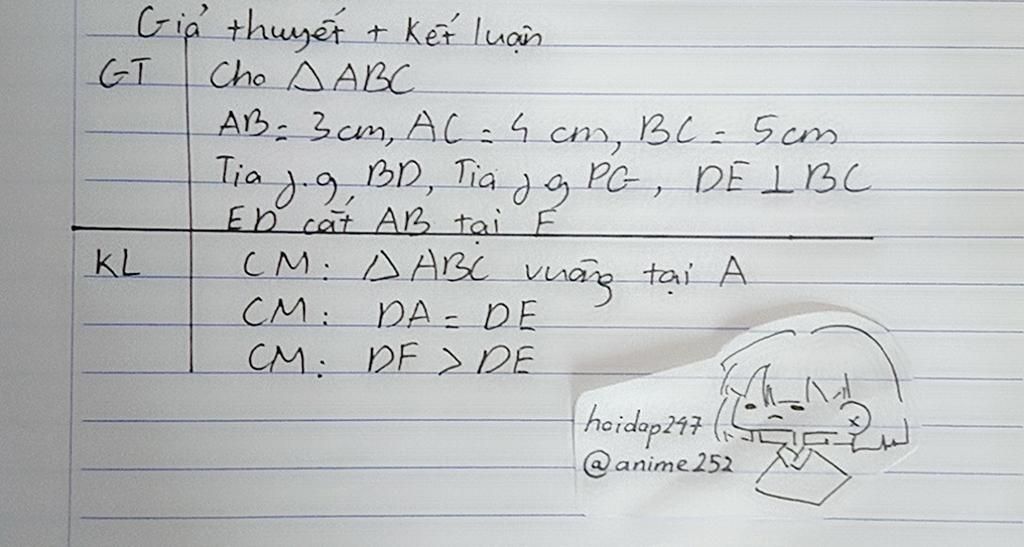 Giả thuyết + Kết luận
GT Cho △ABC
AB = 3cm, AC = 4 cm, BC = 5cm
Tia p.g BD, Tia p g PG, DE ⊥ BC
ED cắt AB tại F
KL CM: △ABC vuông tại A
CM: DA = DE
CM: DF > DE
hoidap247
@anime252